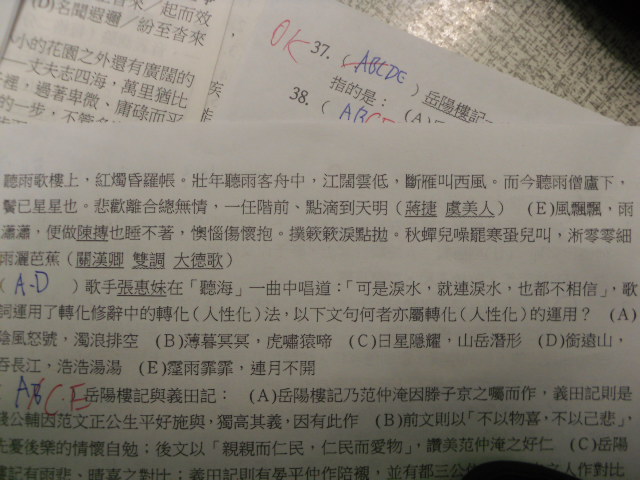 (D)名聞遐邇／紛至沓來
小的花園之外還有廣闊的
一丈夫志四海，萬里猶比
裡，過著卑微、庸碌而平
的一步，不
OK 37. ( ABCDE ) 岳陽樓記
指的是： (A)
38. ( AB
聽雨歌樓上，紅燭昏羅帳。壯年聽雨客舟中，江闊雲低，斷雁叫西風。而今聽雨僧廬下，
鬢已星星也。悲歡離合總無情，一任階前、點滴到天明（蔣捷 虞美人） (E)風飄飄，雨
瀟瀟，便做陳摶也睡不著，懊惱傷懷抱。撲簌簌淚點拋。秋蟬兒噪罷寒蛩兒叫，淅零零細
雨灑芭蕉（關漢卿 雙調 大德歌）
( A.D ) 歌手張惠妹在「聽海」一曲中唱道：「可是淚水，就連淚水，也都不相信」，歌
詞運用了轉化修辭中的轉化（人性化）法，以下文句何者亦屬轉化（人性化）的運用？ (A)
陰風怒號，濁浪排空 (B)薄暮冥冥，虎嘯猿啼 (C)日星隱耀，山岳潛形 (D)銜遠山，
吞長江，浩浩湯湯 (E)霪雨霏霏，連月不開
AB C.E 岳陽樓記與義田記： (A)岳陽樓記乃范仲淹因滕子京之囑而作，義田記則是
錢公輔因范文正公生平好施與，獨高其義，因有此作 (B)前文則以「不以物喜，不以己悲」，
先憂後樂的情懷自勉；後文以「親親而仁民，仁民而愛物」，讚美范仲淹之好仁 (C)岳陽
樓記有雨悲、晴喜之對比；義田記則有晏平仲作陪襯，並有都三公